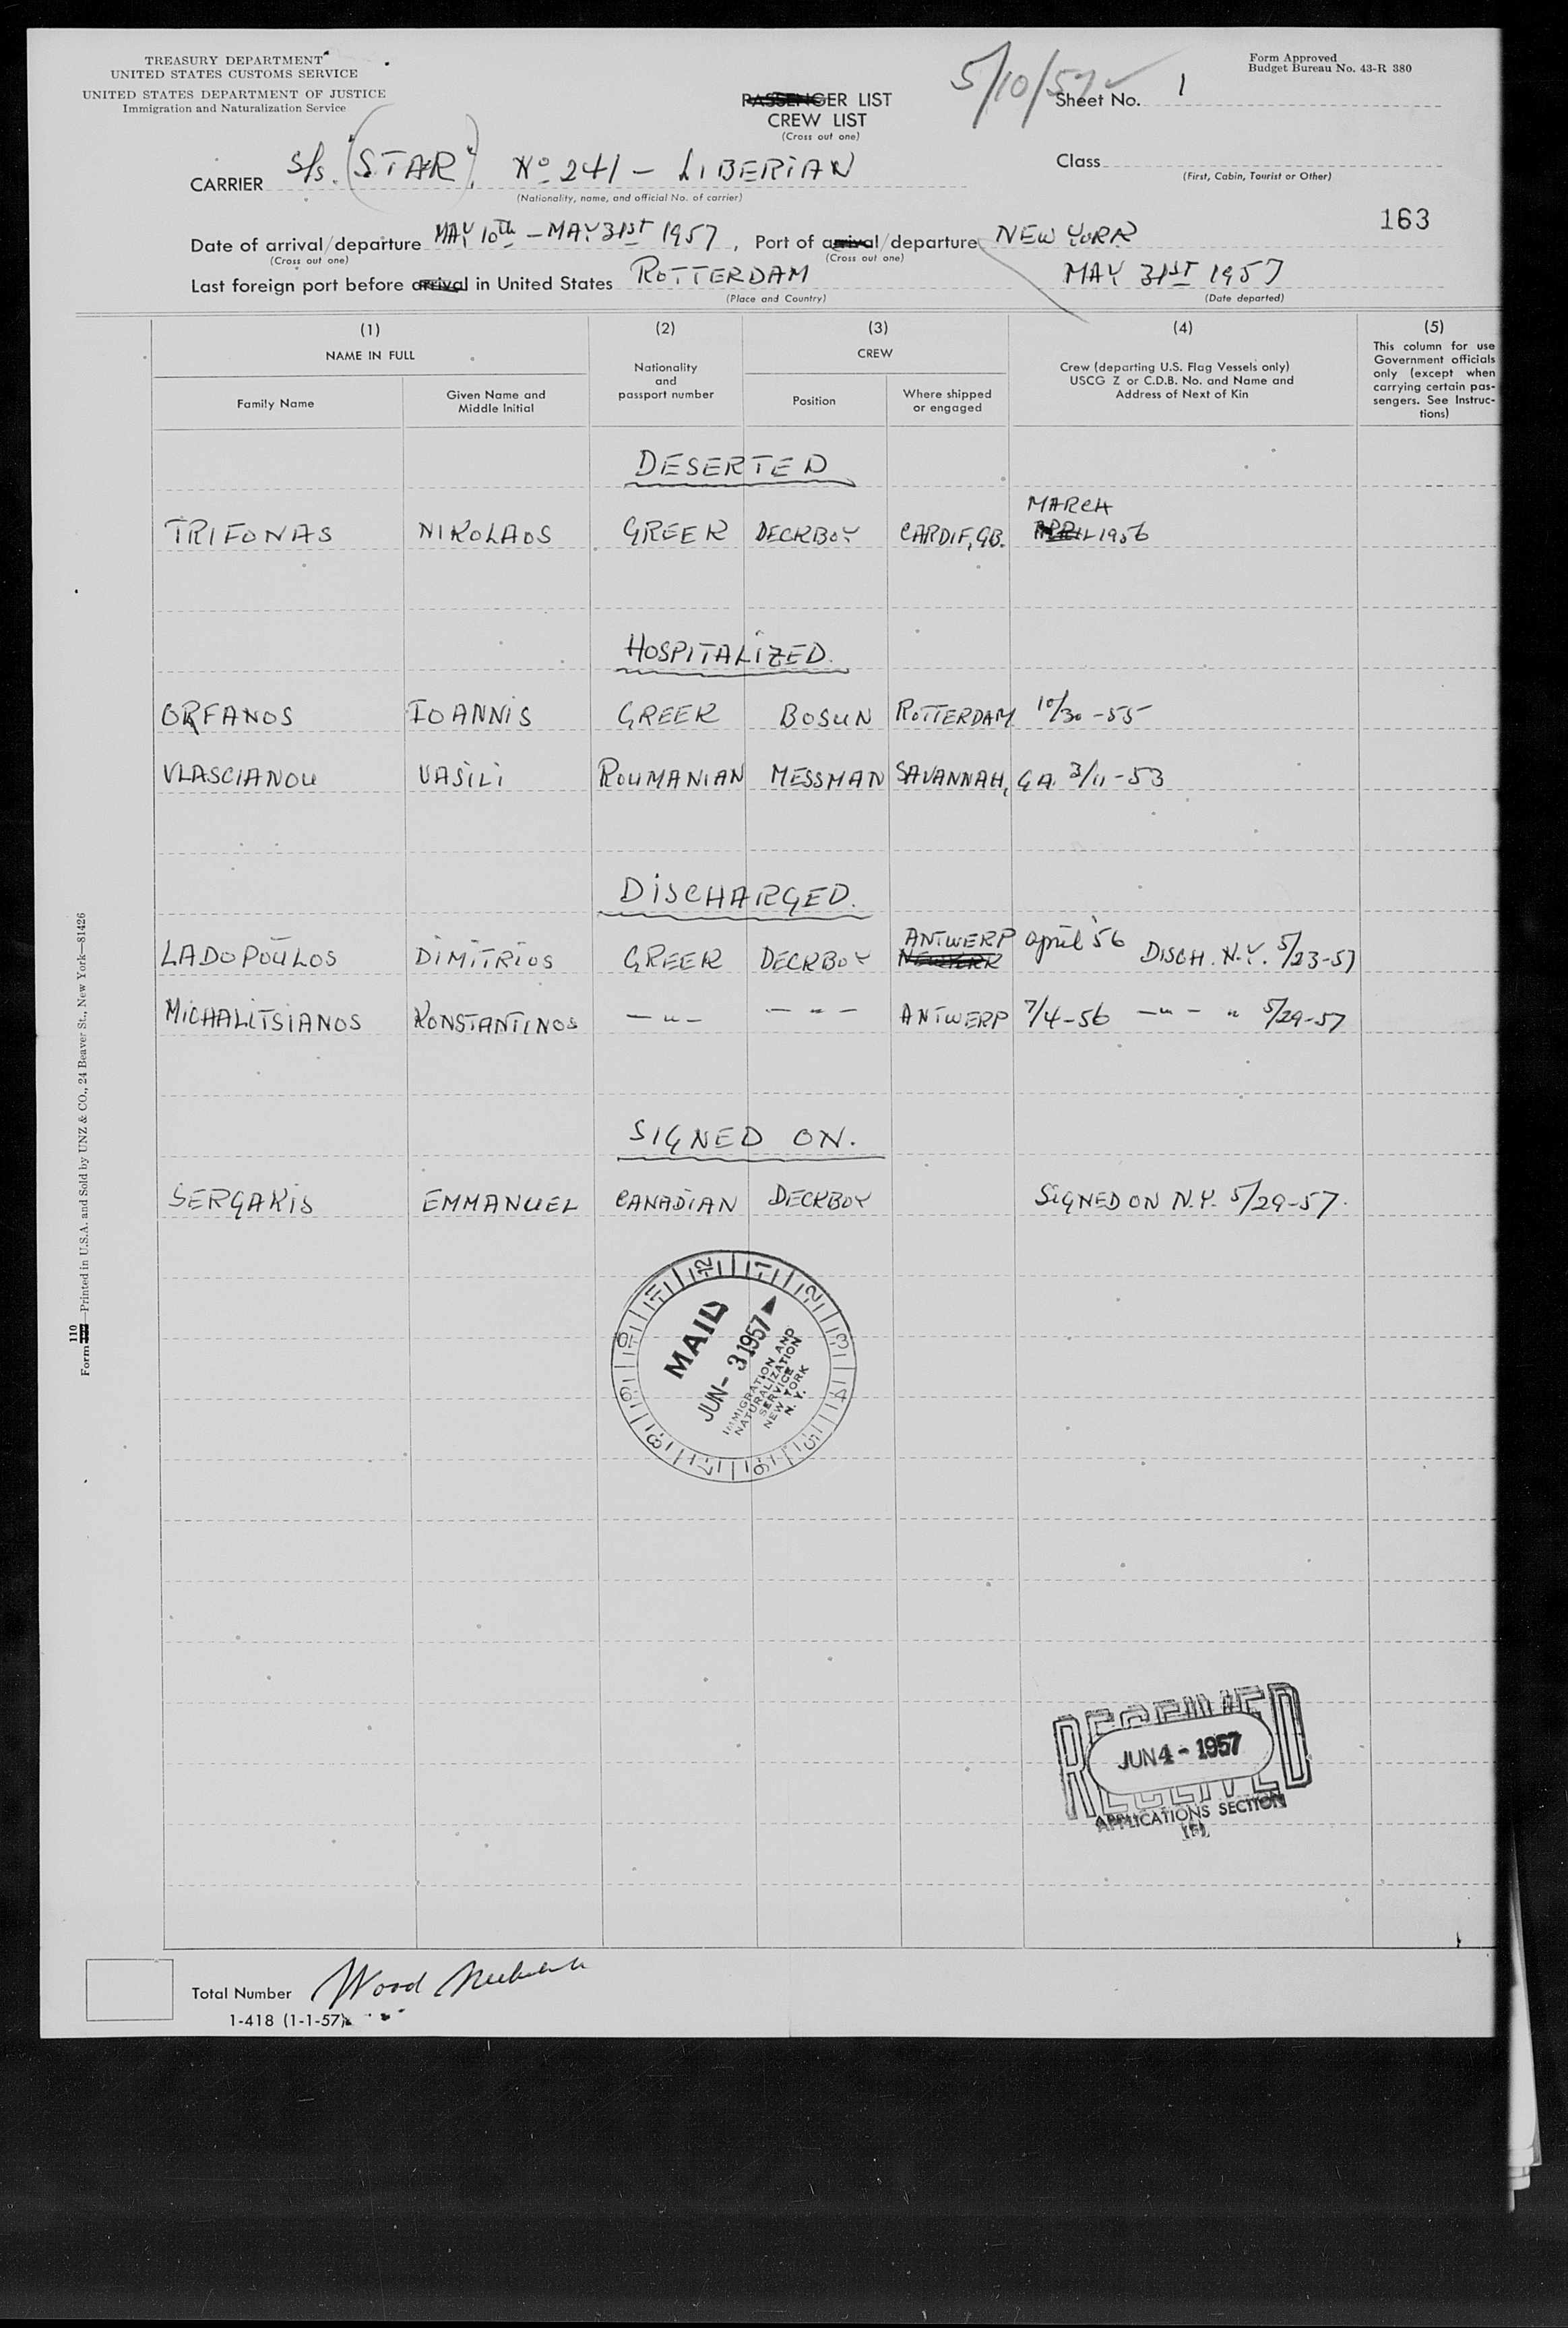 TREASURY DEPARTMENT
UNITED STATES CUSTOMS SERVICE
UNITED STATES DEPARTMENT OF JUSTICE
Immigration and Naturalization Service
5/10/57
Form Approved
Budget Bureau No. 43-R 380
PASSENGER LIST
CREW LIST
(Cross out one)
Sheet No. 1
CARRIER S/s. "STAR", No 241 - LIBERIAN
(Nationality, name, and official No. of carrier)
Class
(First, Cabin, Tourist or Other)
163
Date of arrival/departure MAY 10th - MAY 31st 1957, Port of arrival/departure NEW YORK
(Cross out one) (Cross out one)
Last foreign port before arrival in United States ROTTERDAM MAY 31ST 1957
(Place and Country) (Date departed)
(1) (2) (3) (4) (5)
NAME IN FULL
Nationality and passport number
CREW
Crew (departing U.S. Flag Vessels only) USCG Z or C.D.B. No. and Name and Address of Next of Kin
This column for use Government officials only (except when carrying certain pas- sengers. See Instruc- tions)
Family Name
Given Name and Middle Initial
Position
Where shipped or engaged
DESERTED
MARCH
TRIFONAS NIKOLAOS GREEK DECKBOY CARDIF, GB. APRIL 1956
HOSPITALIZED.
ORFANOS IOANNIS GREEK BOSUN ROTTERDAM 10/30-55
VLASCIANOU VASILI ROUMANIAN MESSMAN SAVANNAH, GA. 3/11-53
DISCHARGED.
LADOPOULOS DIMITRIOS GREEK DECKBOY ANTWERP NEW YORK april '56 DISCH. N.Y. 5/23-57
MICHALITSIANOS KONSTANTINOS — " — — " — ANTWERP 7/4-56 — " — " 5/29-57
SIGNED ON.
SERGAKIS EMMANUEL CANADIAN DECKBOY SIGNED ON N.Y. 5/29-57.
12 1 2 3 4 5 6 7 8 9 10 11
MAILD
JUN- 3 1957
IMMIGRATION AND
NATURALIZATION
SERVICE
NEW YORK
N. Y.
RECEIVED
JUN 4 - 1957
RECEIVED
APPLICATIONS SECTION
110
Form —Printed in U.S.A. and Sold by UNZ & CO., 24 Beaver St., New York—81426
Total Number Wood
1-418 (1-1-57)